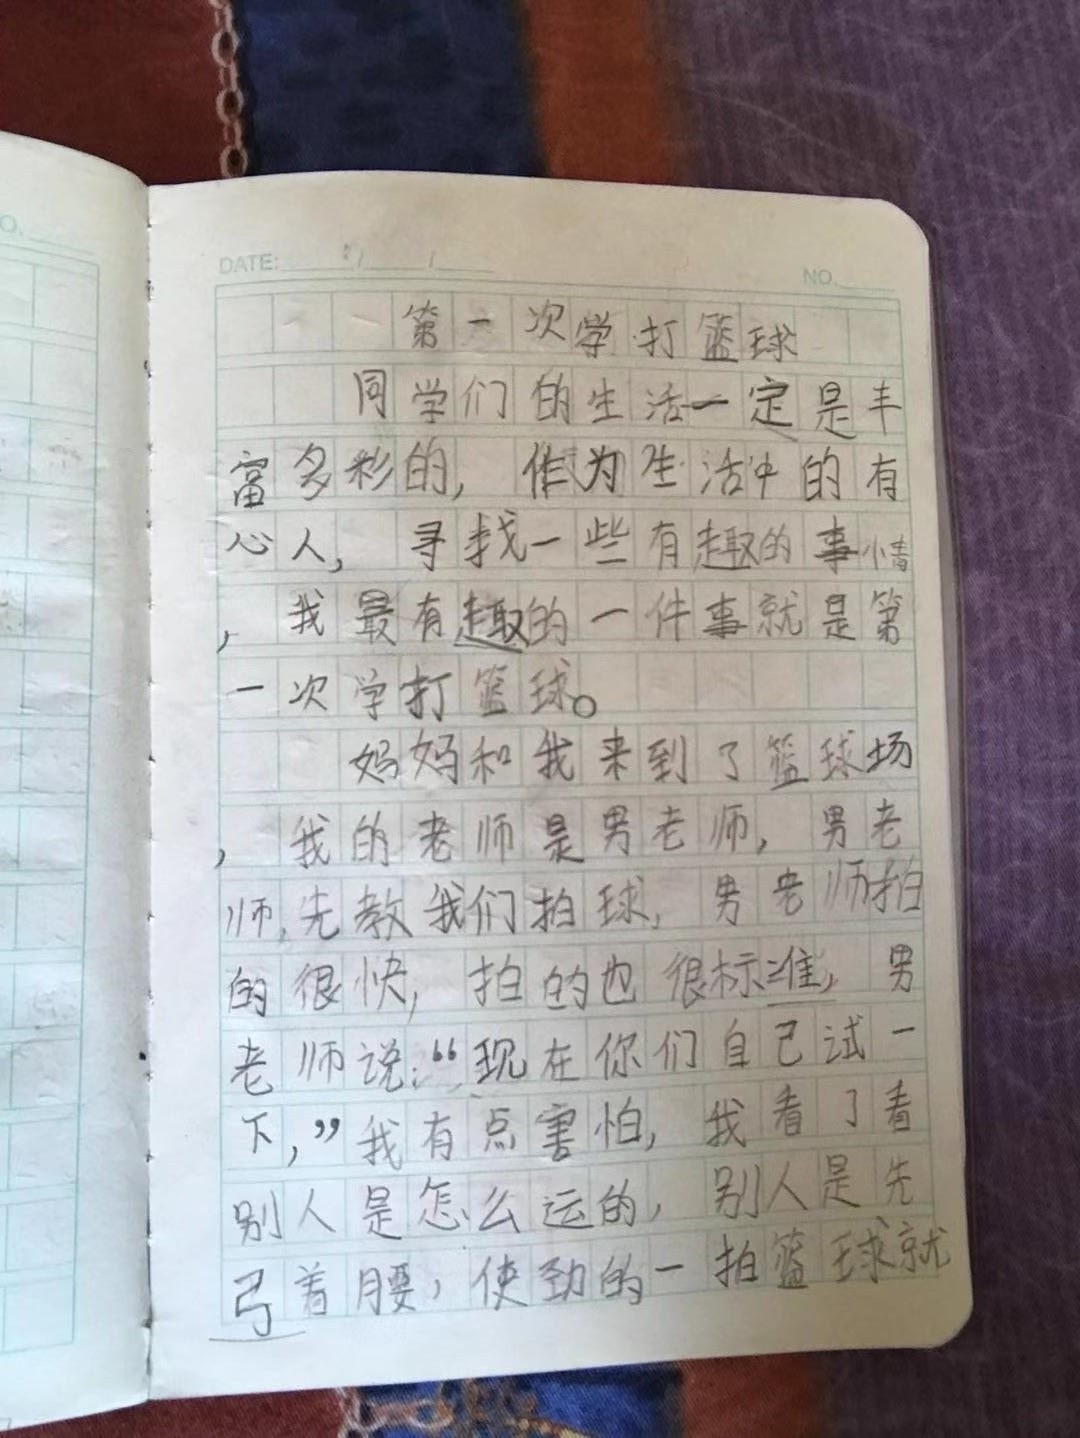 O.
DATE: / /
NO.
第一次学打篮球
同学们的生活一定是丰
富多彩的，作为生活中的有
心人，寻找一些有趣的事情
，我最有趣的一件事就是第
一次学打篮球。
妈妈和我来到了篮球场
，我的老师是男老师，男老
师，先教我们拍球，男老师拍
的很快，拍的也很标准，男
老师说：“现在你们自己试一
下，”我有点害怕，我看了看
别人是怎么运的，别人是先
弓着腰，使劲的一拍篮球就